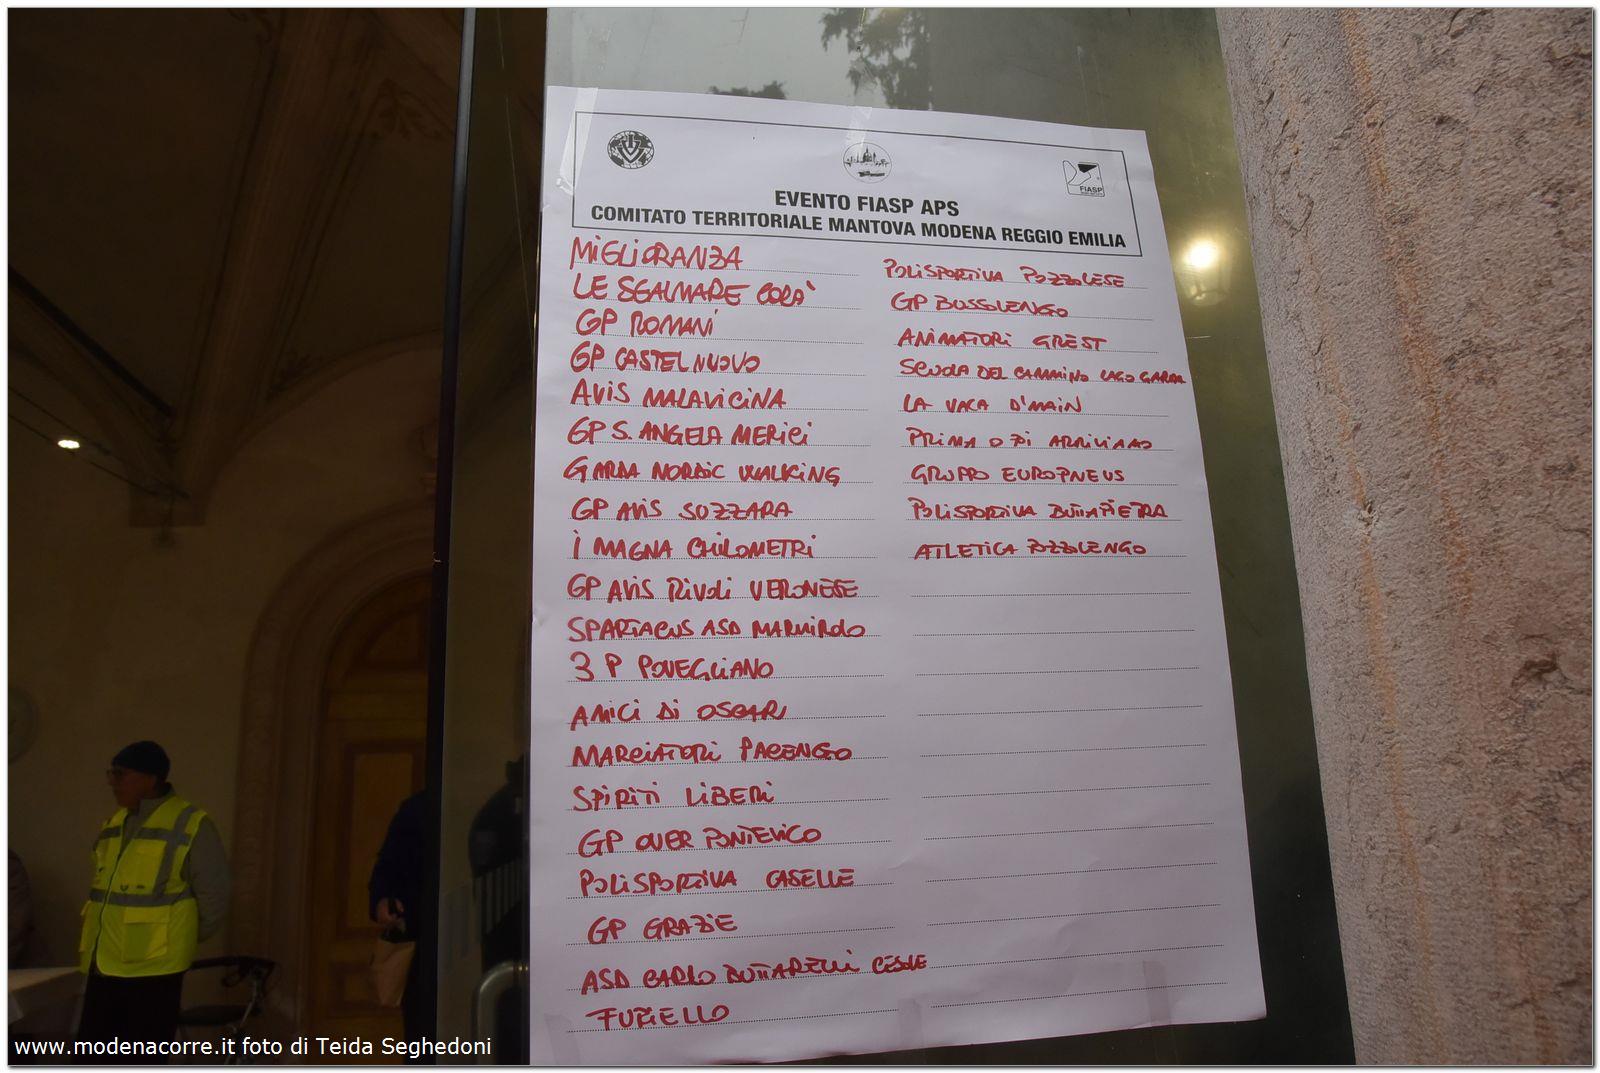 FIASP
EVENTO FIASP APS
COMITATO TERRITORIALE MANTOVA MODENA REGGIO EMILIA
MIGLIORANZA
LE SGALMARE COLA'
GP ROMANI
GP CASTELNUOVO
AVIS MALAVICINA
GP S. ANGELA MERICI
GARDA NORDIC WALKING
GP AVIS SUZZARA
I MAGNA CHILOMETRI
GP AVIS RIVOLI VERONESE
SPARTACUS ASD MARMIROLO
3 P POVEGLIANO
AMICI DI OSCAR
MARCIATORI PACENGO
SPIRITI LIBERI
GP OVER PONTEVICO
POLISPORTIVA CASELLE
GP GRAZIE
ASD CARLO BUTTARELLI CESOLE
POLISPORTIVA POZZOLESE
GP BUSSOLENGO
ANIMATORI GREST
SCUOLA DEL CAMMINO LAGO GARDA
LA VACA D'MAIN
PRIMA O POI ARRIVIAMO
GRUPPO EUROPNEUS
POLISPORTIVA BUTTAPIETRA
ATLETICA POZZOLENGO
www.modenacorre.it foto di Teida Seghedoni